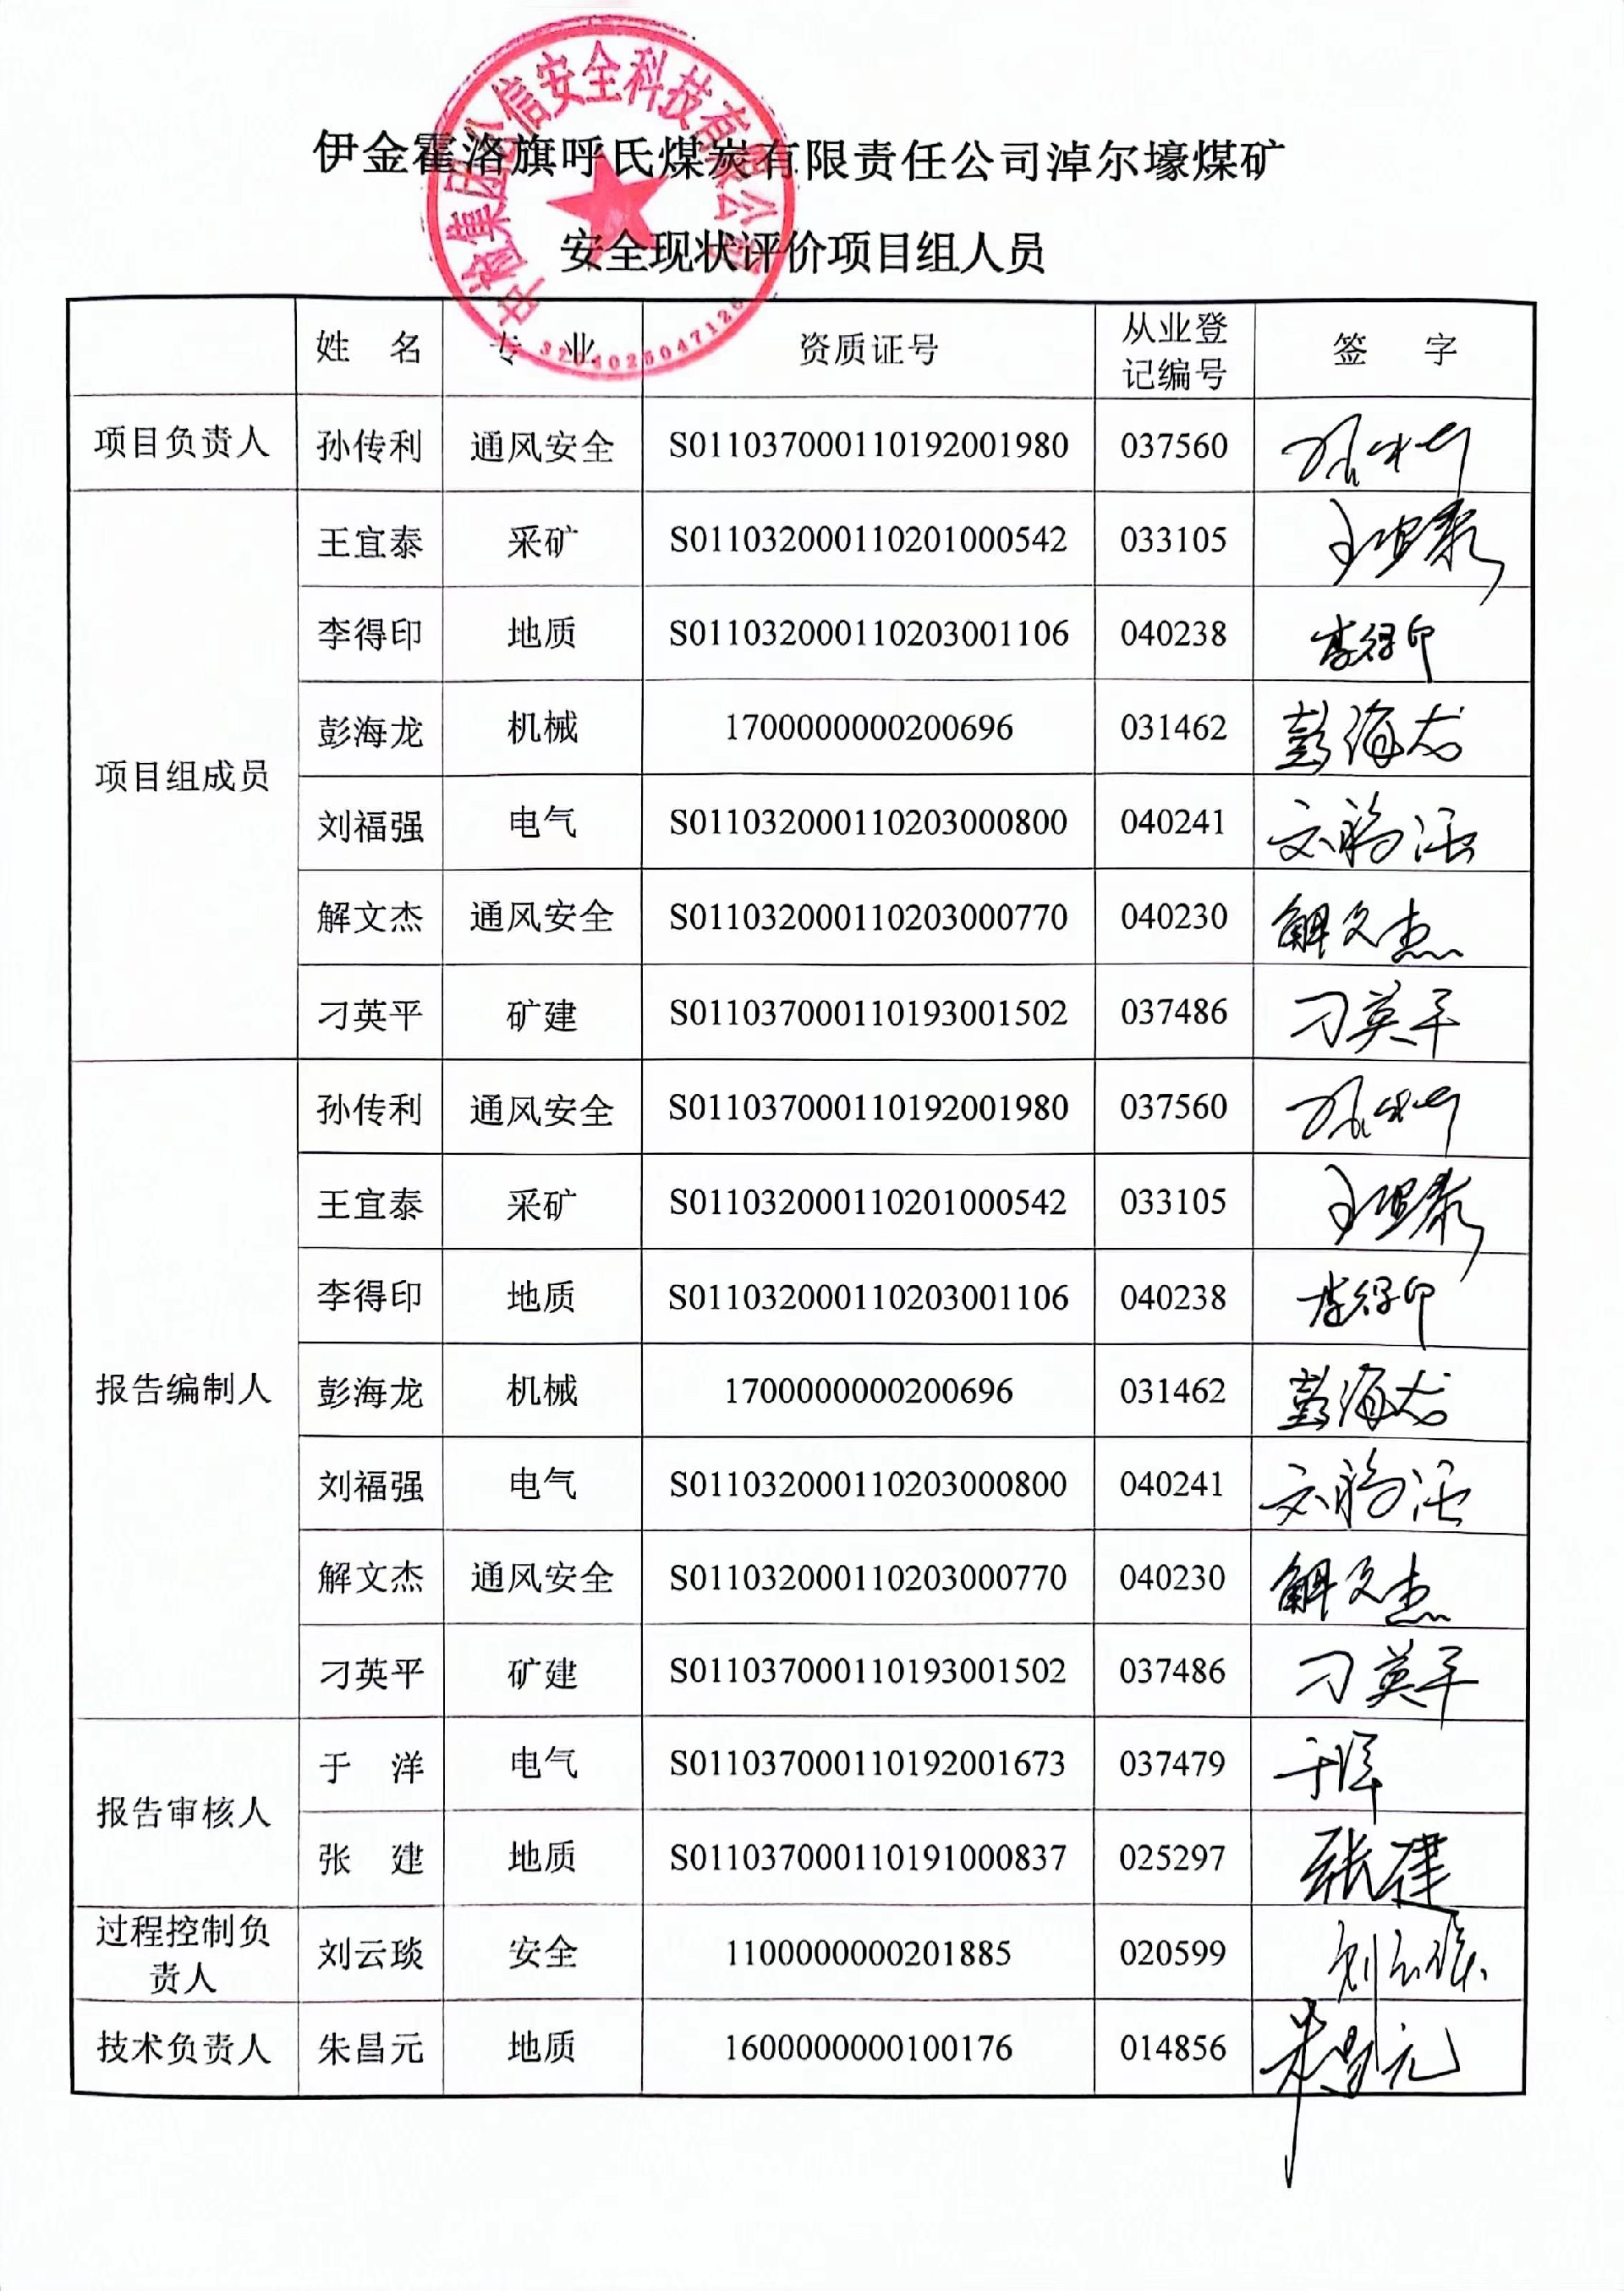 伊金霍洛旗呼氏煤炭有限责任公司淖尔壕煤矿
安全现状评价项目组人员
信安全科技有限公司
姓 名 专 业 资质证号 从业登记编号 签 字
项目负责人 孙传利 通风安全 S011037000110192001980 037560
项目组成员 王宜泰 采矿 S011032000110201000542 033105 王宜泰
李得印 地质 S011032000110203001106 040238 李得印
彭海龙 机械 1700000000200696 031462 彭海龙
刘福强 电气 S011032000110203000800 040241 刘福强
解文杰 通风安全 S011032000110203000770 040230 解文杰
刁英平 矿建 S011037000110193001502 037486 刁英平
报告编制人 孙传利 通风安全 S011037000110192001980 037560
王宜泰 采矿 S011032000110201000542 033105 王宜泰
李得印 地质 S011032000110203001106 040238 李得印
彭海龙 机械 1700000000200696 031462 彭海龙
刘福强 电气 S011032000110203000800 040241 刘福强
解文杰 通风安全 S011032000110203000770 040230 解文杰
刁英平 矿建 S011037000110193001502 037486 刁英平
报告审核人 于 洋 电气 S011037000110192001673 037479 于洋
张 建 地质 S011037000110191000837 025297 张建
过程控制负责人 刘云琰 安全 1100000000201885 020599 刘云琰
技术负责人 朱昌元 地质 1600000000100176 014856 朱昌元